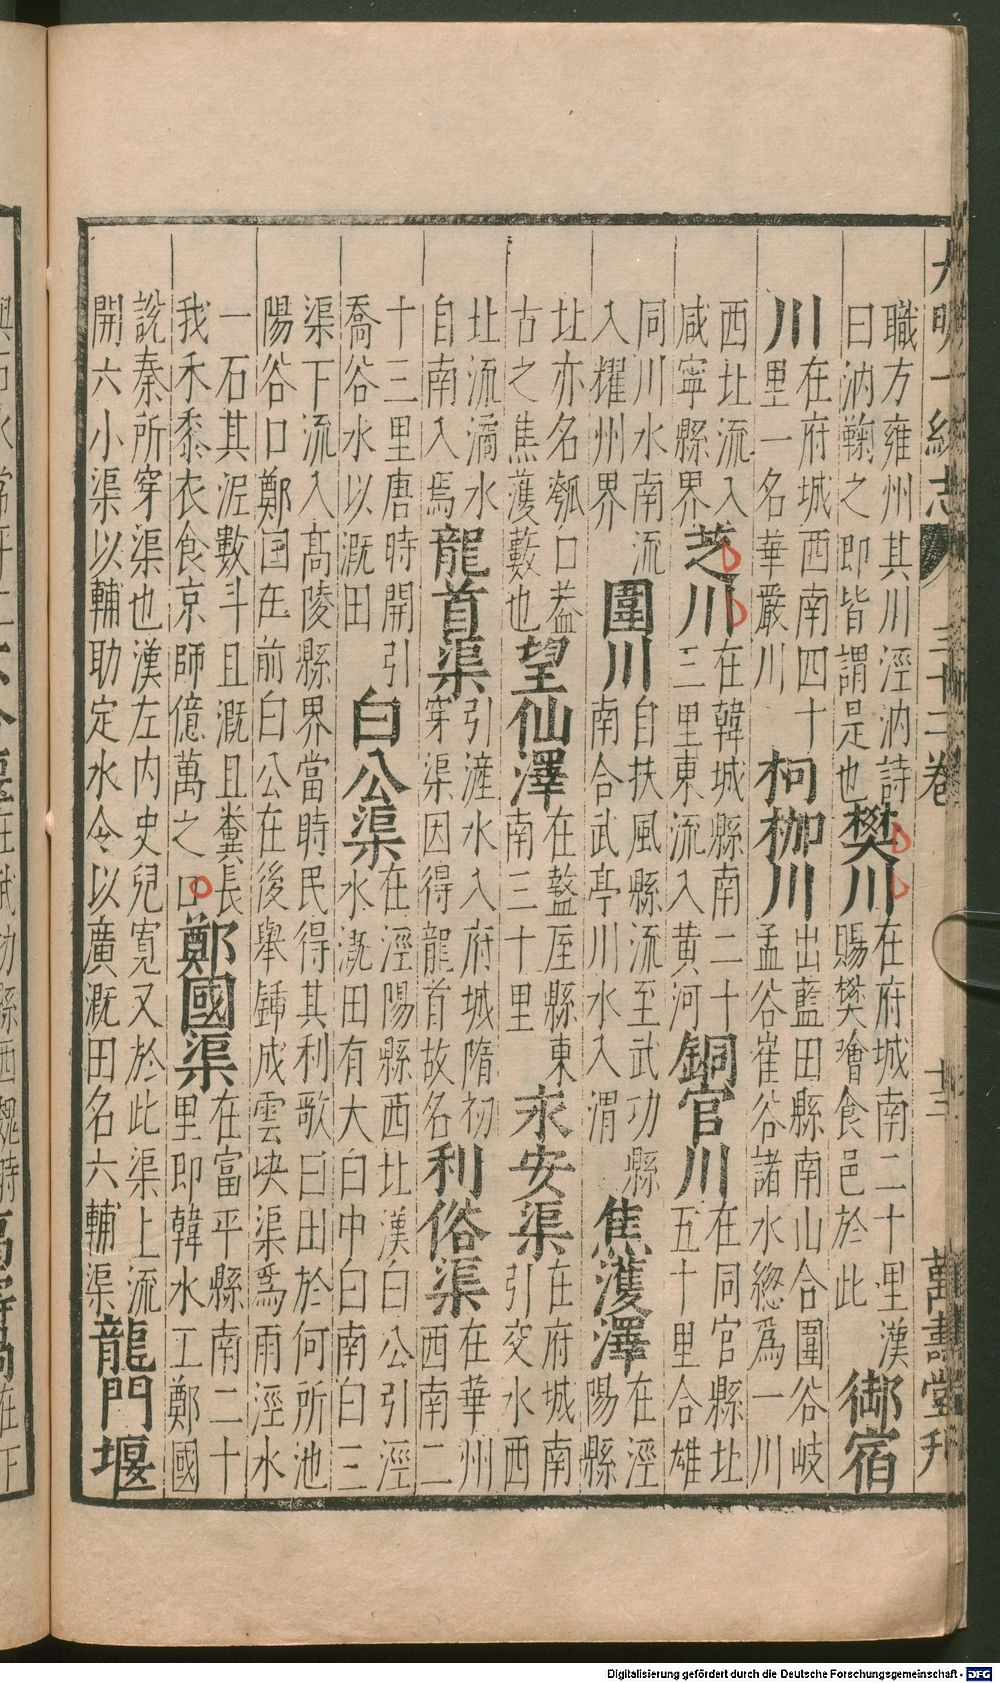 大明一統志 三十二卷 十三 萬壽堂刋
職方雍州其川涇汭詩
曰汭鞠之即皆謂是也
樊川
在府城南二十里漢
賜樊噲食邑於此
御宿
川
在府城西南四十
里一名華嚴川
柯枷川
出藍田縣南山合圍谷岐
孟谷崔谷諸水緫爲一川
西北流入
咸寧縣界
芝川
在韓城縣南二十
三里東流入黄河
銅官川
在同官縣北
五十里合雄
同川水南流
入耀州界
圍川
自扶風縣流至武功縣
南合武亭川水入渭
焦濩澤
在涇
陽縣
北亦名瓠口葢
古之焦濩藪也
望仙澤
在盩厔縣東
南三十里
永安渠
在府城南
引交水西
北流潏水
自南入焉
龍首渠
引滻水入府城隋初
穿渠因得龍首故名
利俗渠
在華州
西南二
十三里唐時開引
喬谷水以溉田
白公渠
在涇陽縣西北漢白公引涇
水溉田有大白中白南白三
渠下流入髙陵縣界當時民得其利歌曰田於何所池
陽谷口鄭国在前白公在後舉鍤成雲决渠爲雨涇水
一石其泥數斗且溉且糞長
我禾黍衣食京師億萬之口
鄭國渠
在富平縣南二十
里即韓水工鄭國
說秦所穿渠也漢左内史兒寛又於此渠上流
開六小渠以輔助定水令以廣溉田名六輔渠
龍門堰
Digitalisierung gefördert durch die Deutsche Forschungsgemeinschaft - DFG